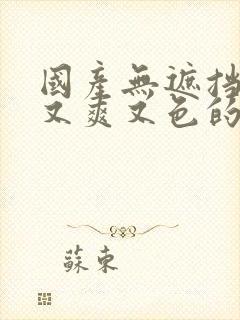 國產無遮挡
又爽又色的
蘇東